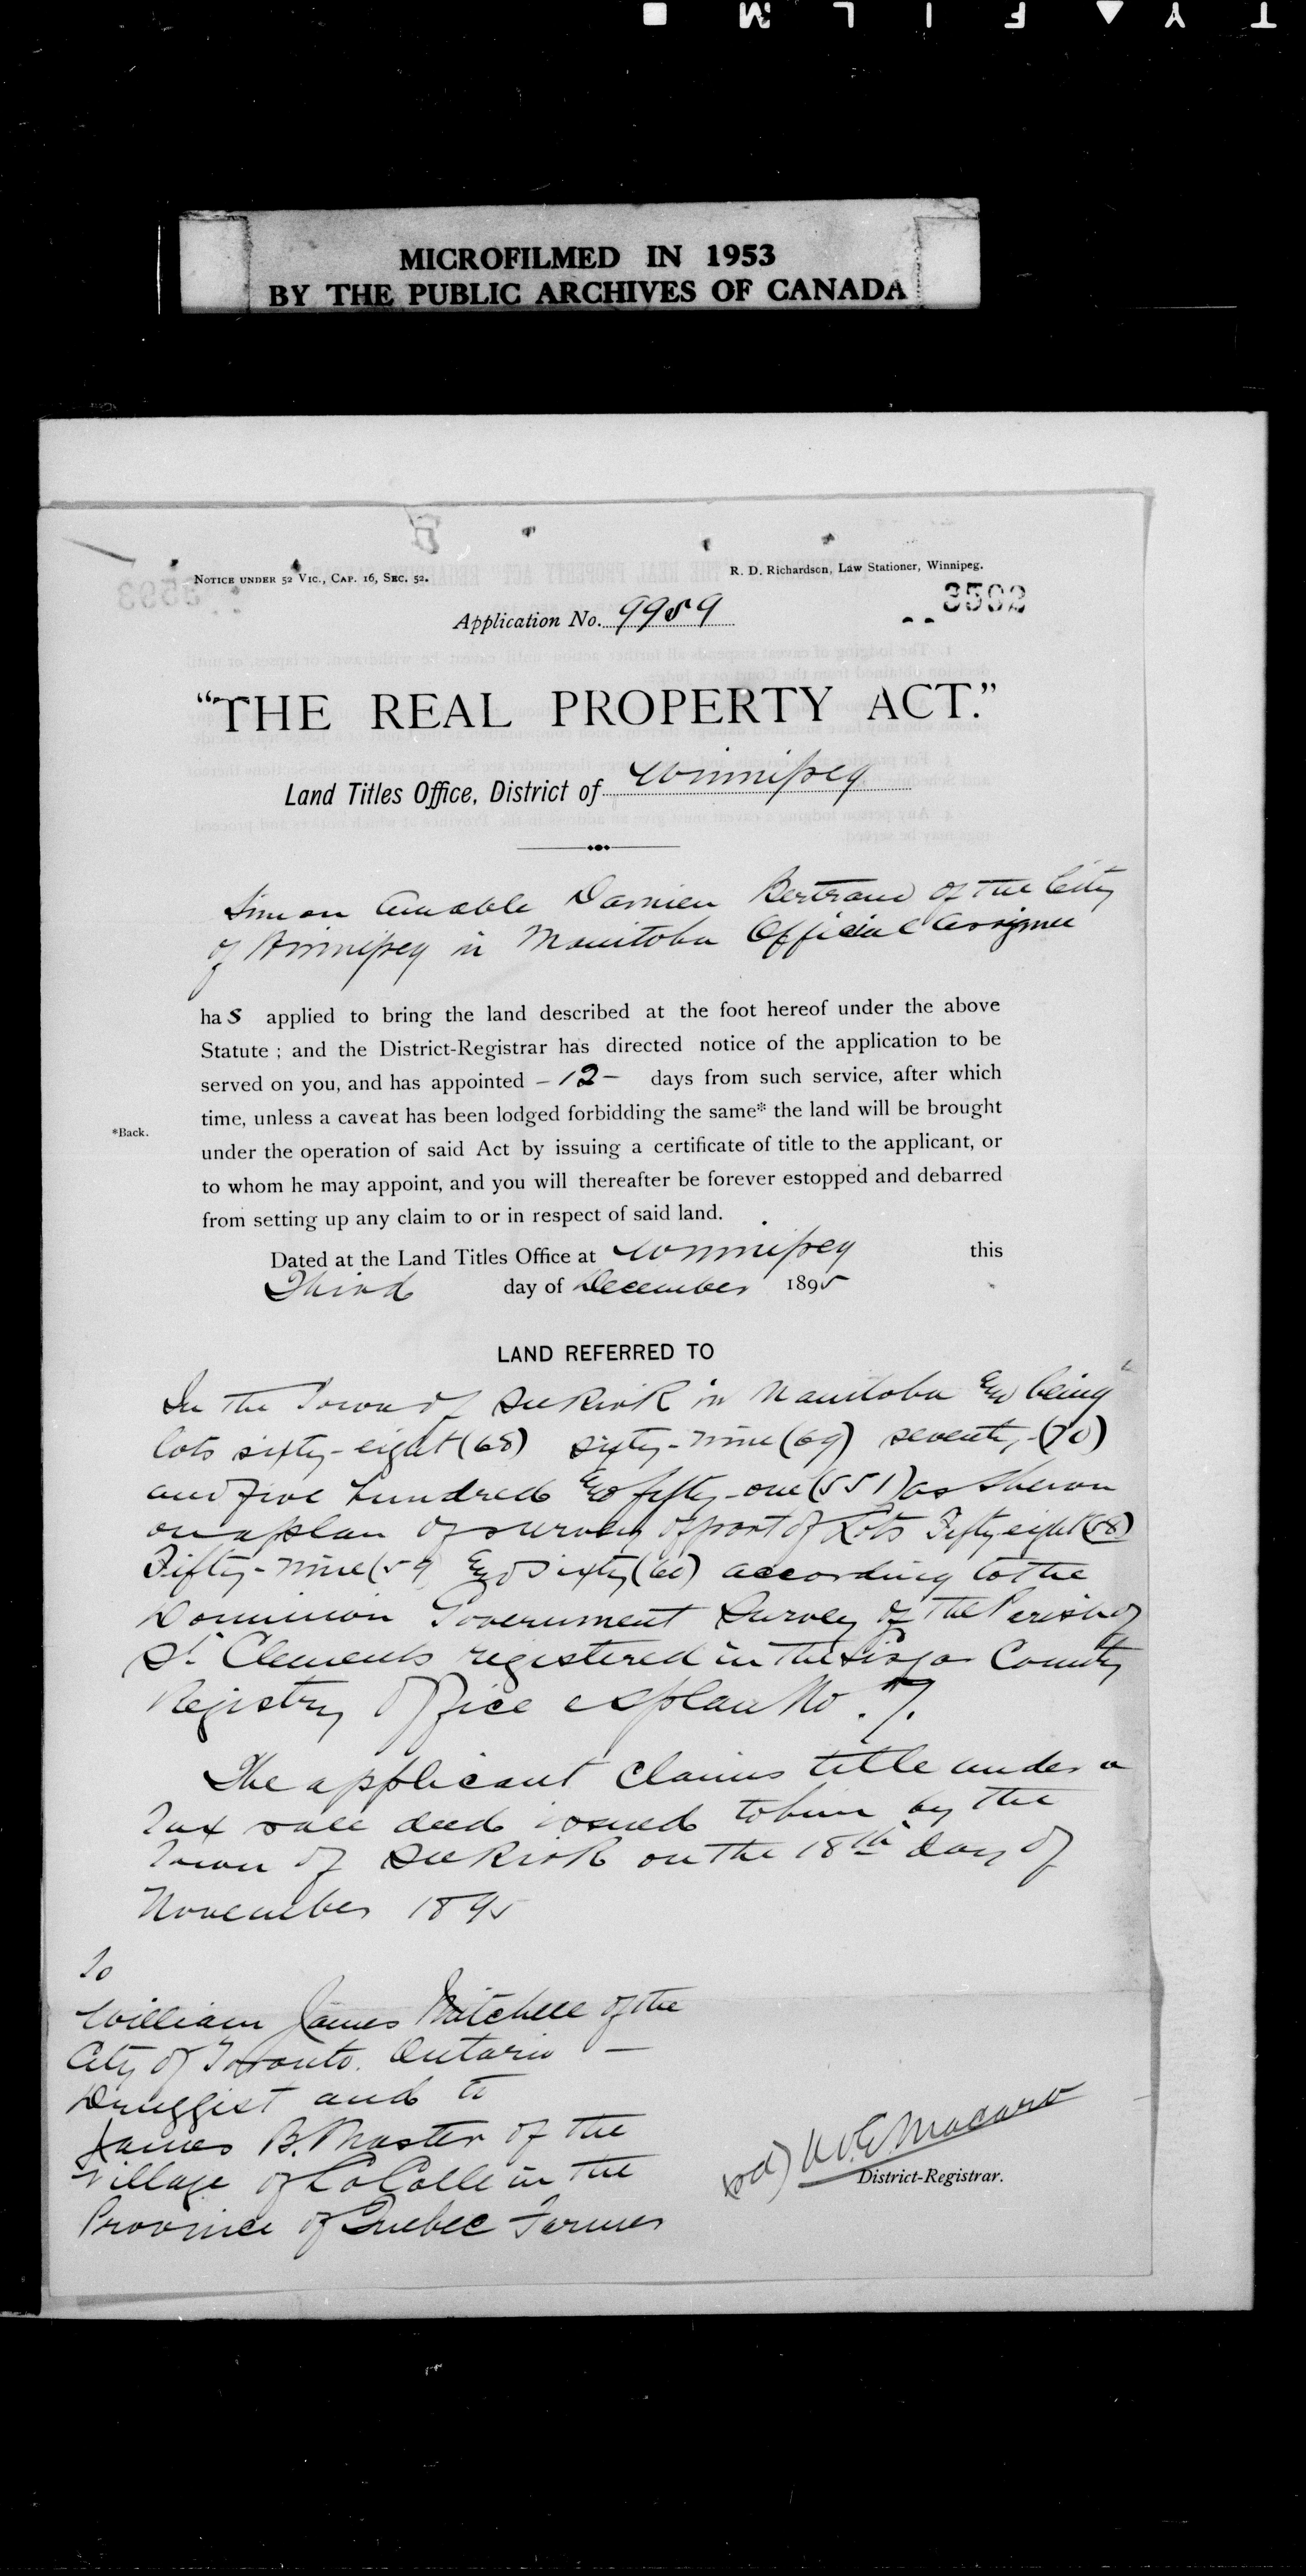 MICROFILMED IN 1953
BY THE PUBLIC ARCHIVES OF CANADA
NOTICE UNDER 52 VIC., CAP. 16, SEC. 52.
R. D. Richardson, Law Stationer, Winnipeg.
Application No. 9989
3592
"THE REAL PROPERTY ACT."
Land Titles Office, District of Winnipeg
Simon Amable Damien Bertrand of the City
of Winnipeg in Manitoba Official Assignee
has applied to bring the land described at the foot hereof under the above
Statute ; and the District-Registrar has directed notice of the application to be
served on you, and has appointed - 12 - days from such service, after which
time, unless a caveat has been lodged forbidding the same* the land will be brought
*Back.
under the operation of said Act by issuing a certificate of title to the applicant, or
to whom he may appoint, and you will thereafter be forever estopped and debarred
from setting up any claim to or in respect of said land.
Dated at the Land Titles Office at Winnipeg this
Third day of December 1895
LAND REFERRED TO
In the Town of Selkirk in Manitoba & being
lots sixty-eight (68) sixty-nine (69) seventy-(70)
and five hundred & fifty-one (551) as shown
on a plan of survey of part of Lots Fifty eight (58)
Fifty-nine (59 & Sixty (60) according to the
Dominion Government Survey of the Parish of
St. Clements registered in the Lisgar County
Registry Office as plan No. 7.
The applicant claims title under a
tax sale deed issued to him by the
Town of Selkirk on the 18th day of
November 1895
To
William James Mitchell of the
City of Toronto. Ontario —
Druggist and to
James B. Master of the
village of LaColle in the
Province of Quebec Farmer
sd) W. E. Macara
District-Registrar.